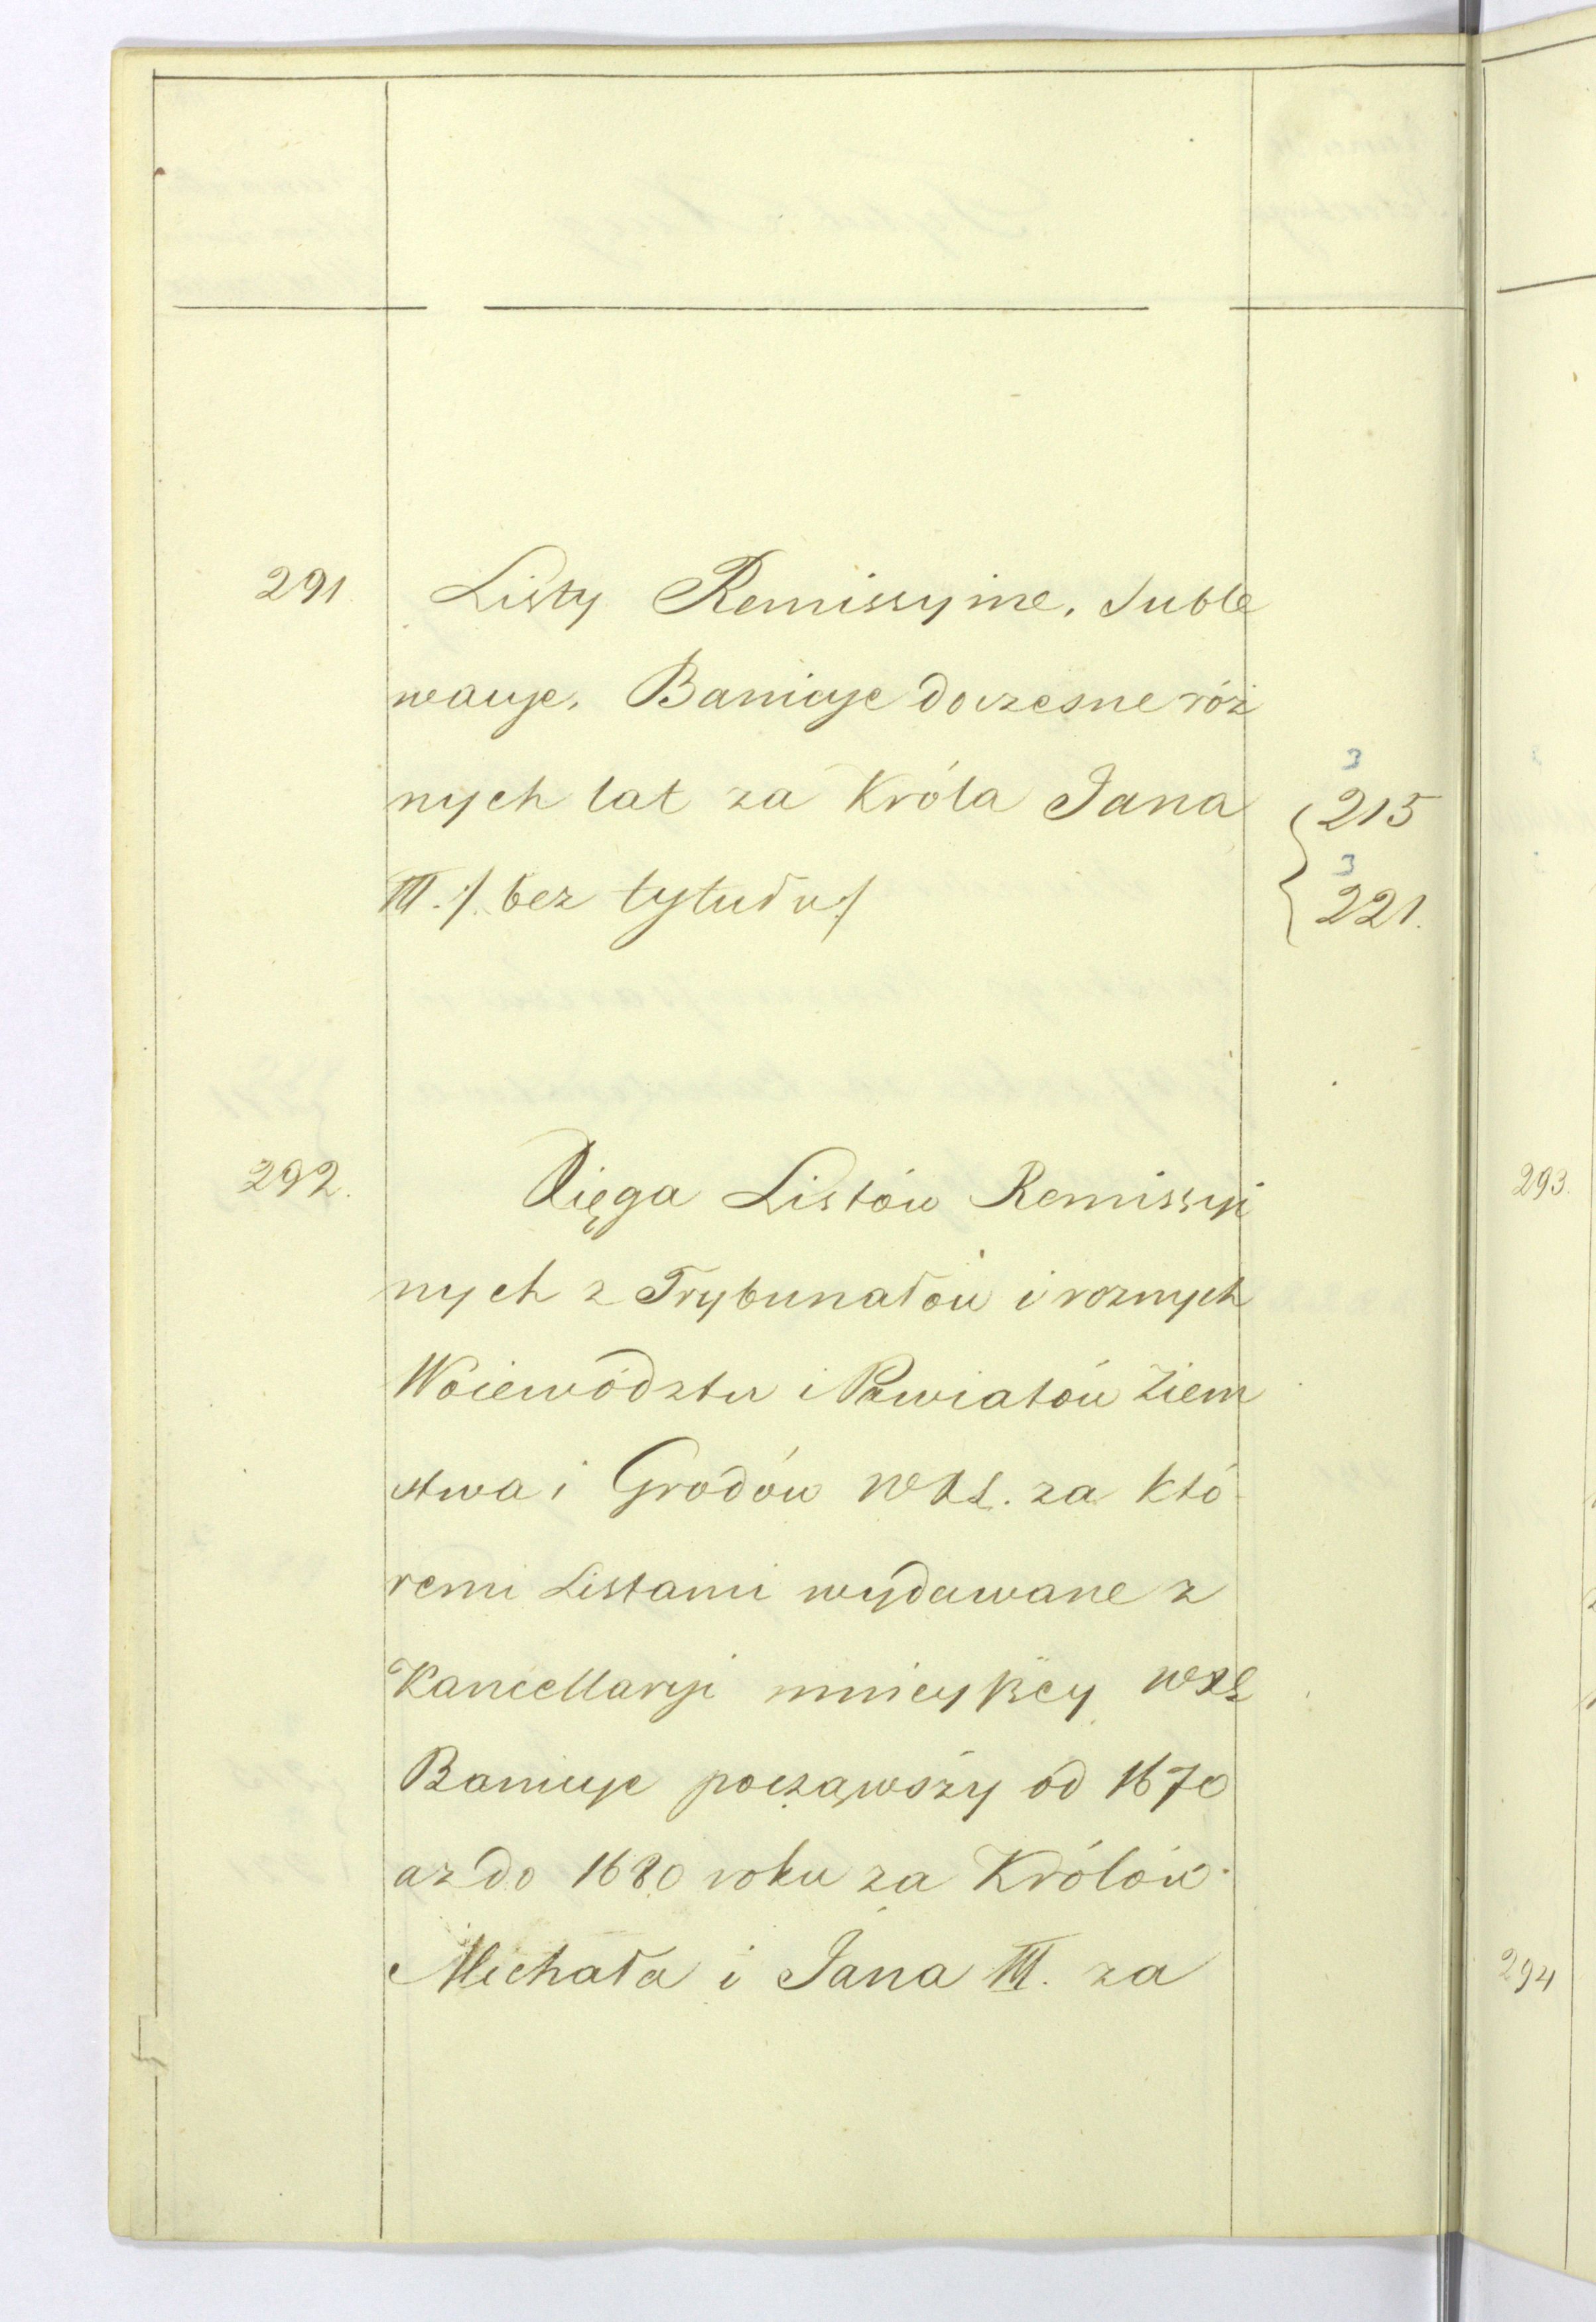 291. Listy Remissyine, Suble
wacyje, Banicyje doczesne róż
nych lat za Króla Jana
3
215
III. /. bez tytułu /.
3
221.
292. Xięga Listów Remissyi
nych z Trybunałów i roznych
Woiewódstw i Powiatów Ziem
stwa i Grodów WXL. za któ
remi Listami wydawane z
Kancellaryi mnieyszey WXL
Banicyje począwszy od 1670
az do 1680 roku za Królów
Michała i Jana III. za
293.
294